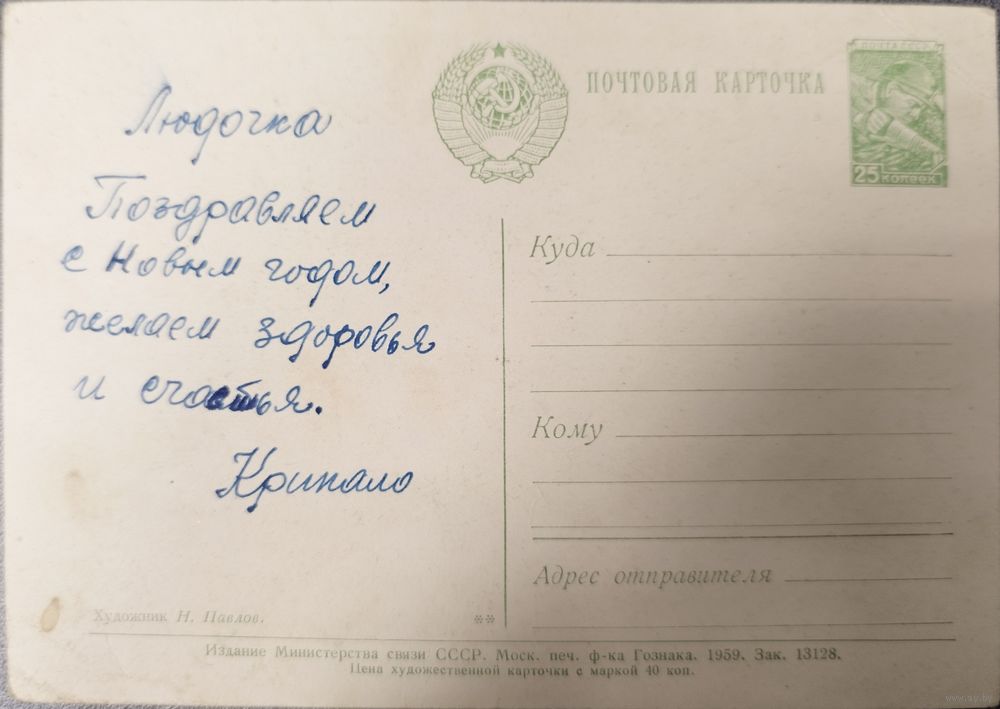 Людочка
Поздравляем
с Новым годом,
желаем здоровья
и счастья.
Крипало
Художник Н. Павлов.
**
ПОЧТОВАЯ КАРТОЧКА
ПОЧТА СССР
25 копеек
Куда
Кому
Адрес отправителя
Издание Министерства связи СССР. Моск. печ. ф-ка Гознака. 1959. Зак. 13128.
Цена художественной карточки с маркой 40 коп.
www.ay.by